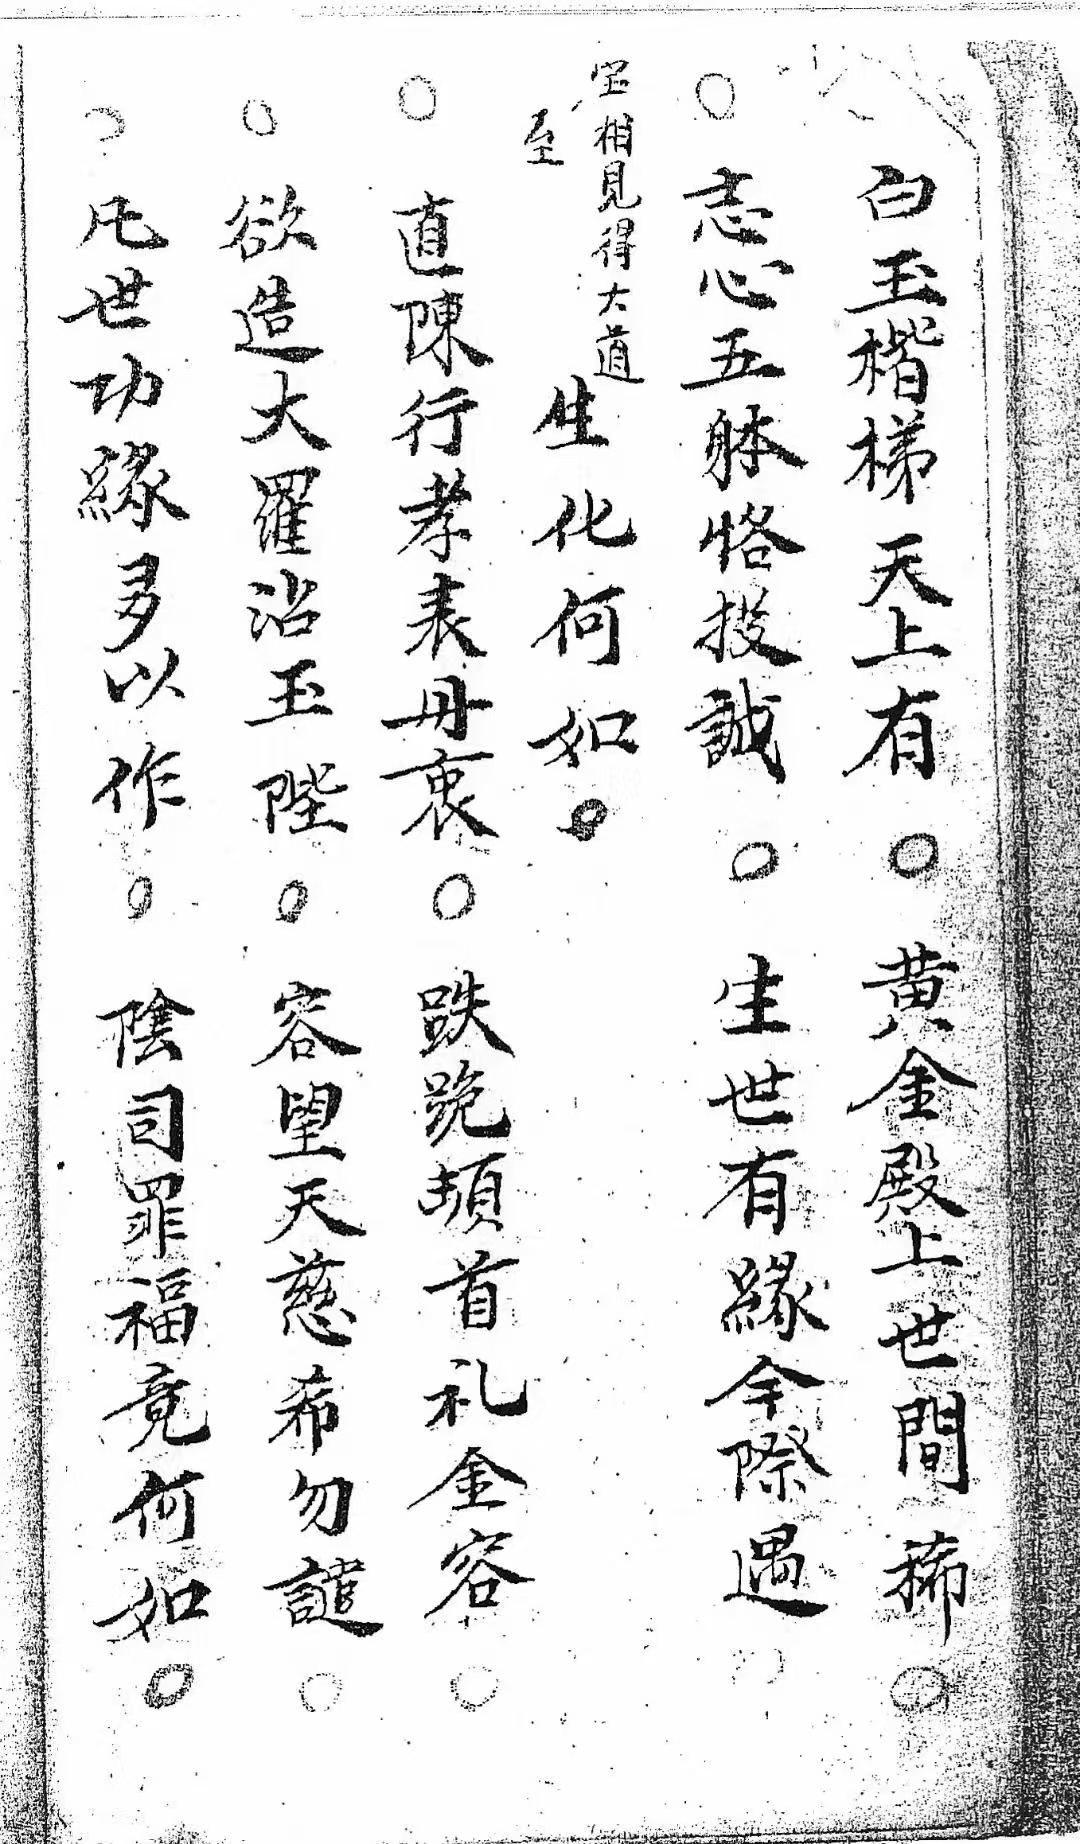 白玉楷梯天上有○黄金殿上世間稀○
○志心五躰恪投誠○生世有緣今際遇
宝相見得大道
至
生化何如○
○直陳行孝表丹衷○跌跪頓首礼金容○
○欲造大羅沿玉陛○容望天慈希勿譴○
○凡世功緣多以作○陰司罪福竟何如○